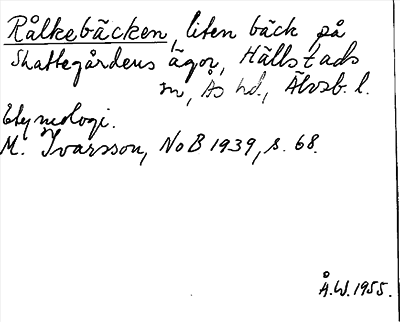 Rålkebäcken, liten bäck på
Skattegårdens ägor, Hällstads
m, Ås hd., Älvsb. l.
Etymologi.
M. Ivarsson, NoB 1939, s. 68.
Å.W. 1955.